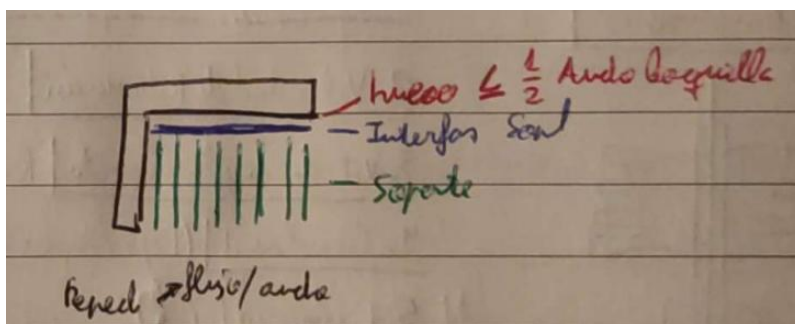 hueco ≤ 1/2 Ancho boquilla
Interfas
Soporte
flujo/ancho